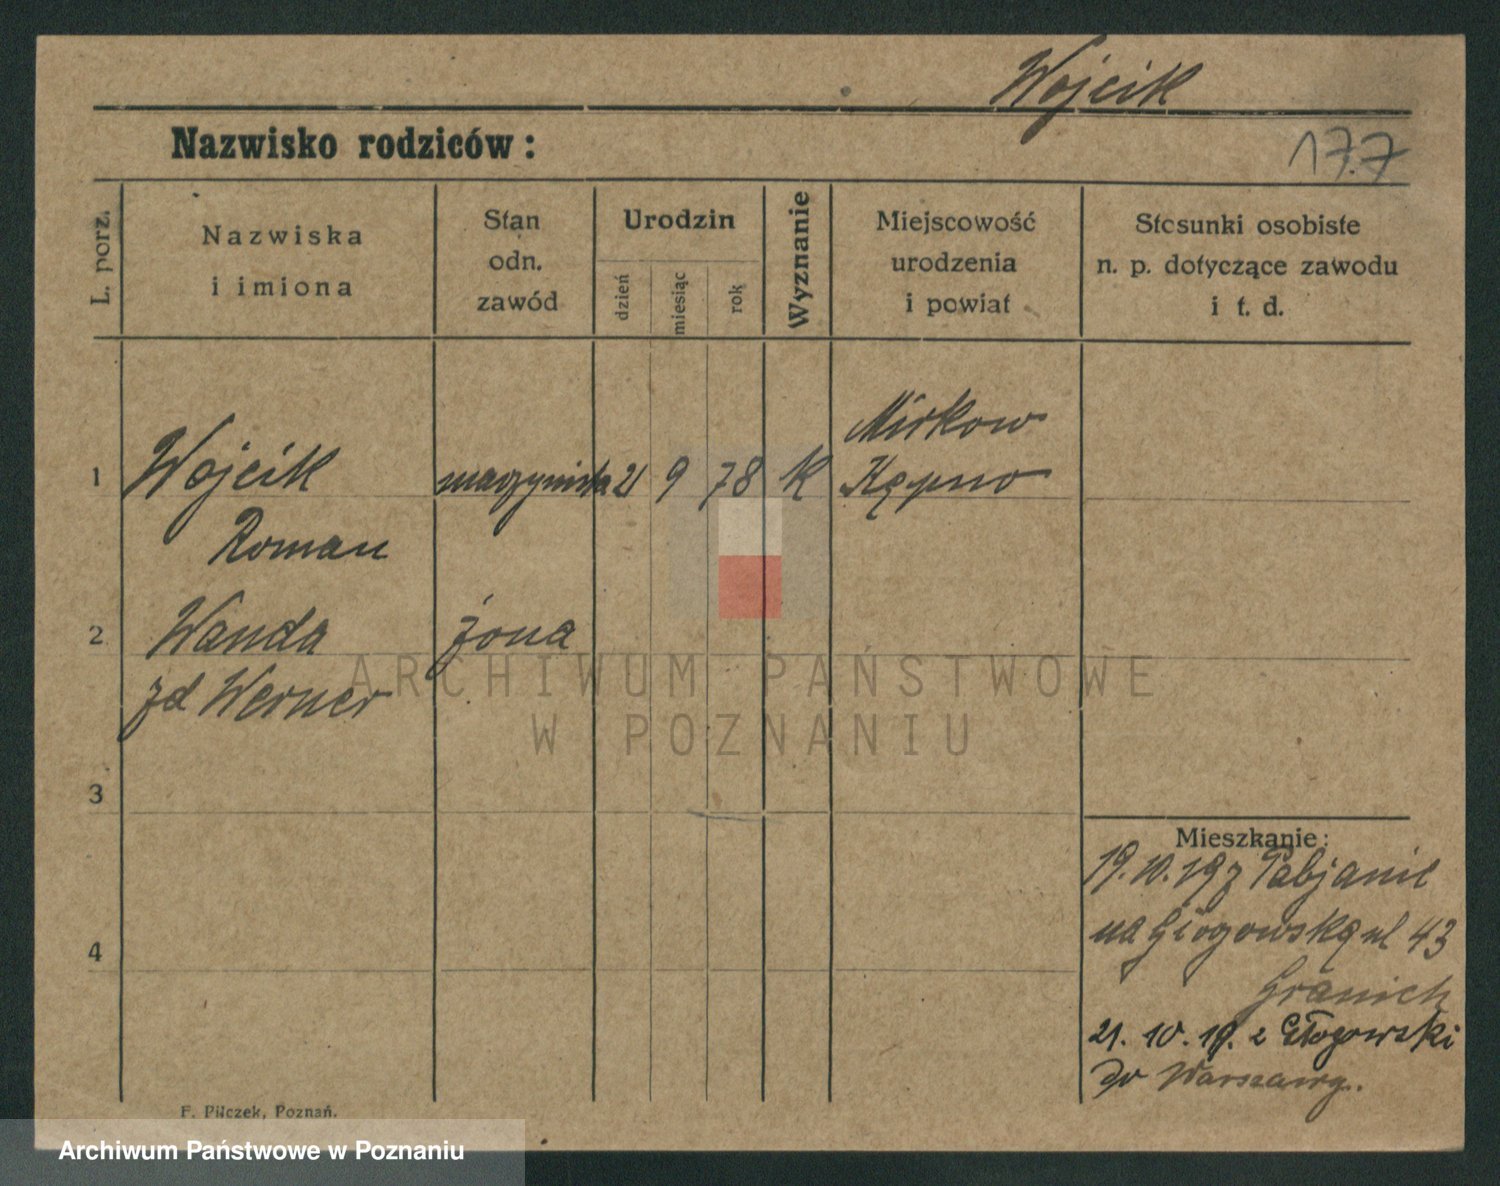 Wojcik
Nazwisko rodziców:
17.7
L. porz.
Nazwiska
i imiona
Stan
odn.
zawód
Urodzin
dzień
miesiąc
rok
Wyznanie
Miejscowość
urodzenia
i powiat
Stosunki osobiste
n. p. dotyczące zawodu
i t. d.
1
Wojcik
Roman
maszynista
21
9
78
K
Mirkow
Kępno
2
Wanda
zd Werner
żona
3
4
Mieszkanie:
19.10.19 z Pabjanic
na Głogowską ul 43
21. 10. 19. z Głogowski
do Warszawy.
F. Pilczek, Poznań.
ARCHIWUM PAŃSTWOWE
W POZNANIU
Archiwum Państwowe w Poznaniu